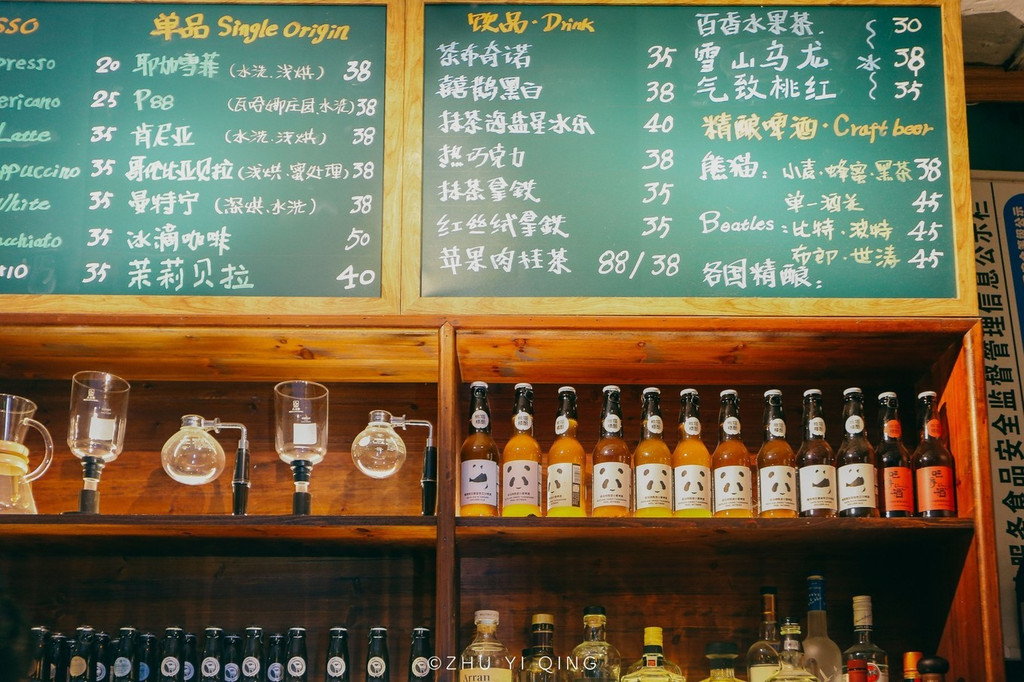 SSO
presso 20
ericano 25
Latte 35
ppuccino 35
White 35
acchiato 35
#10 35
单品 Single Origin
耶加雪菲 (水洗.浅烘) 38
P88 (瓦哈娜庄园.水洗) 38
肯尼亚 (水洗.浅烘) 38
哥伦比亚贝拉 (浅烘.蜜处理) 38
曼特宁 (深烘.水洗) 38
冰滴咖啡 50
茉莉贝拉 40
饮品·Drink
茶布奇诺 35
囍鹊黑白 38
抹茶海盐星冰乐 40
热巧克力 38
抹茶拿铁 35
红丝绒拿铁 35
苹果肉桂茶 88/38
百香水果茶. 30
雪山乌龙 冰 38
气致桃红 35
精酿啤酒·Craft beer
熊猫: 小麦·蜂蜜·黑茶 38
单一酒花 45
Beatles: 比特·波特 45
布郎·世涛 45
各国精酿:
服务食品安全监督管理信息公示栏
Arran
©ZHU YI QING